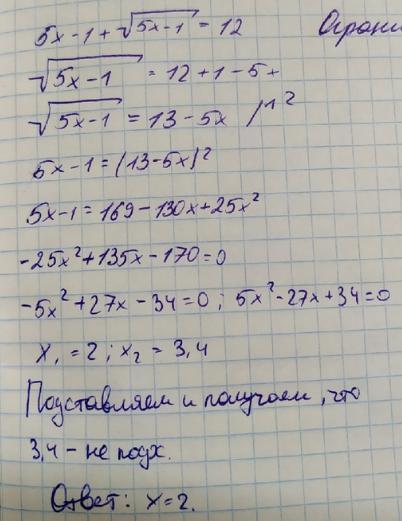 5x-1+√5x-1 = 12
√5x-1 = 12+1-5x
√5x-1 = 13-5x /^2
5x-1=(13-5x)²
5x-1=169-130x+25x²
-25x²+135x-170=0
-5x²+27x-34=0; 5x²-27x+34=0
x₁=2; x₂=3,4
Подставляем и получаем, что
3,4-не подх.
Ответ: x=2.